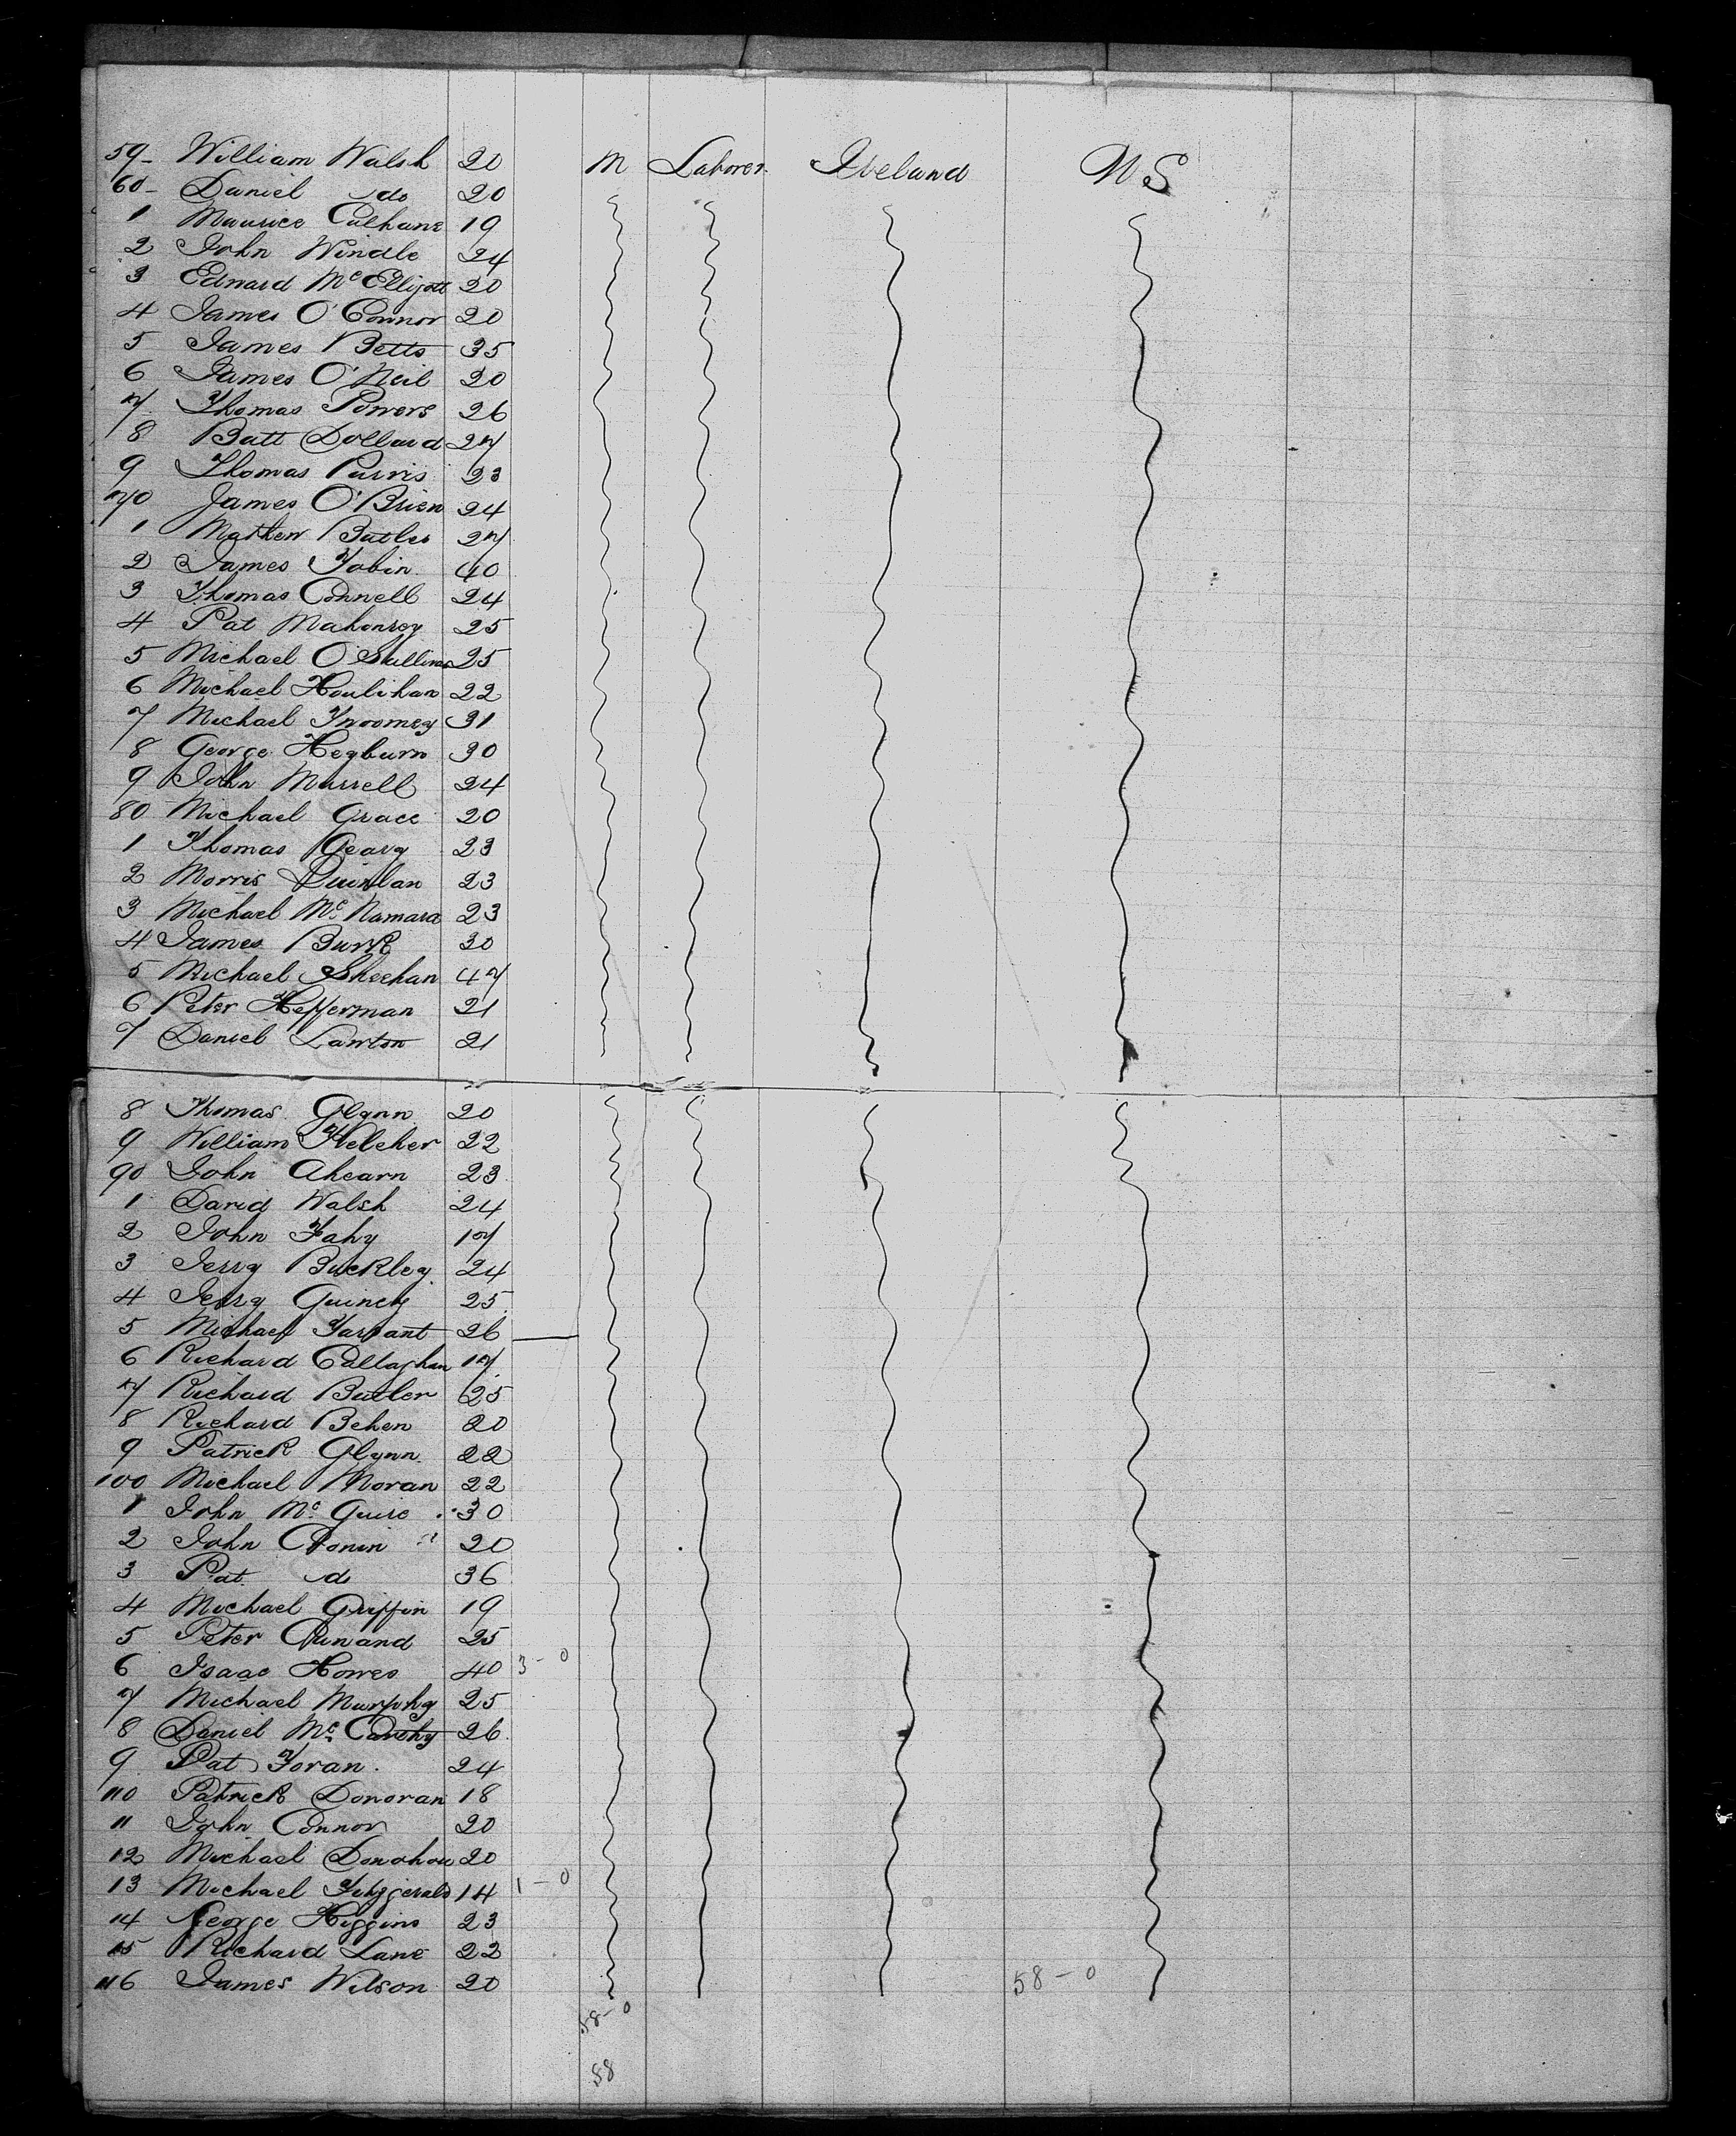 59- William Walsh 20 M Laborer Ireland US
60- Daniel do 20
1 Maurice Culhane 19
2 John Windle 24
3 Edward McElligott 20
4 James O'Connor 20
5 James Betts 35
6 James O'Neil 20
7 Thomas Powers 26
8 Batt Dollard 27
9 Thomas Purvis 23
70 James O'Brien 24
1 Mathew Butler 27
2 James Tobin 40
3 Thomas Connell 24
4 Pat Mahonrey 25
5 Michael O'Sullivan 25
6 Michael Houlihan 22
7 Michael Twoomey 31
8 George Hegburn 30
9 John Murrell 24
80 Michael Grace 20
1 Thomas Geary 23
2 Morris Quinlan 23
3 Michael McNamara 23
4 James Burk 30
5 Michael Sheehan 47
6 Peter Hefferman 21
7 Daniel Lawton 21
8 Thomas Glynn 20
9 William Keleher 22
90 John Ahearn 23
1 David Walsh 24
2 John Fahy 17
3 Jerry Buckley 24
4 Jerry Quincy 25
5 Michael Tarpant 26
6 Richard Callaghan 17
7 Richard Butler 25
8 Richard Behen 20
9 Patrick Glynn 22
100 Michael Moran 22
1 John McGuire 30
2 John Cronin 20
3 Pat do 36
4 Michael Griffin 19
5 Peter 25
6 Isaac Howes 40 3-0
7 Michael Murphy 25
8 Daniel McCarthy 26
9 Pat Foran 24
110 Patrick Donovan 18
11 John Connor 20
12 Michael Donohou 20
13 Michael Fitzgerald 14 1-0
14 George Higgins 23
15 Richard Lane 22
116 James Wilson 20 58-0
58-0
58